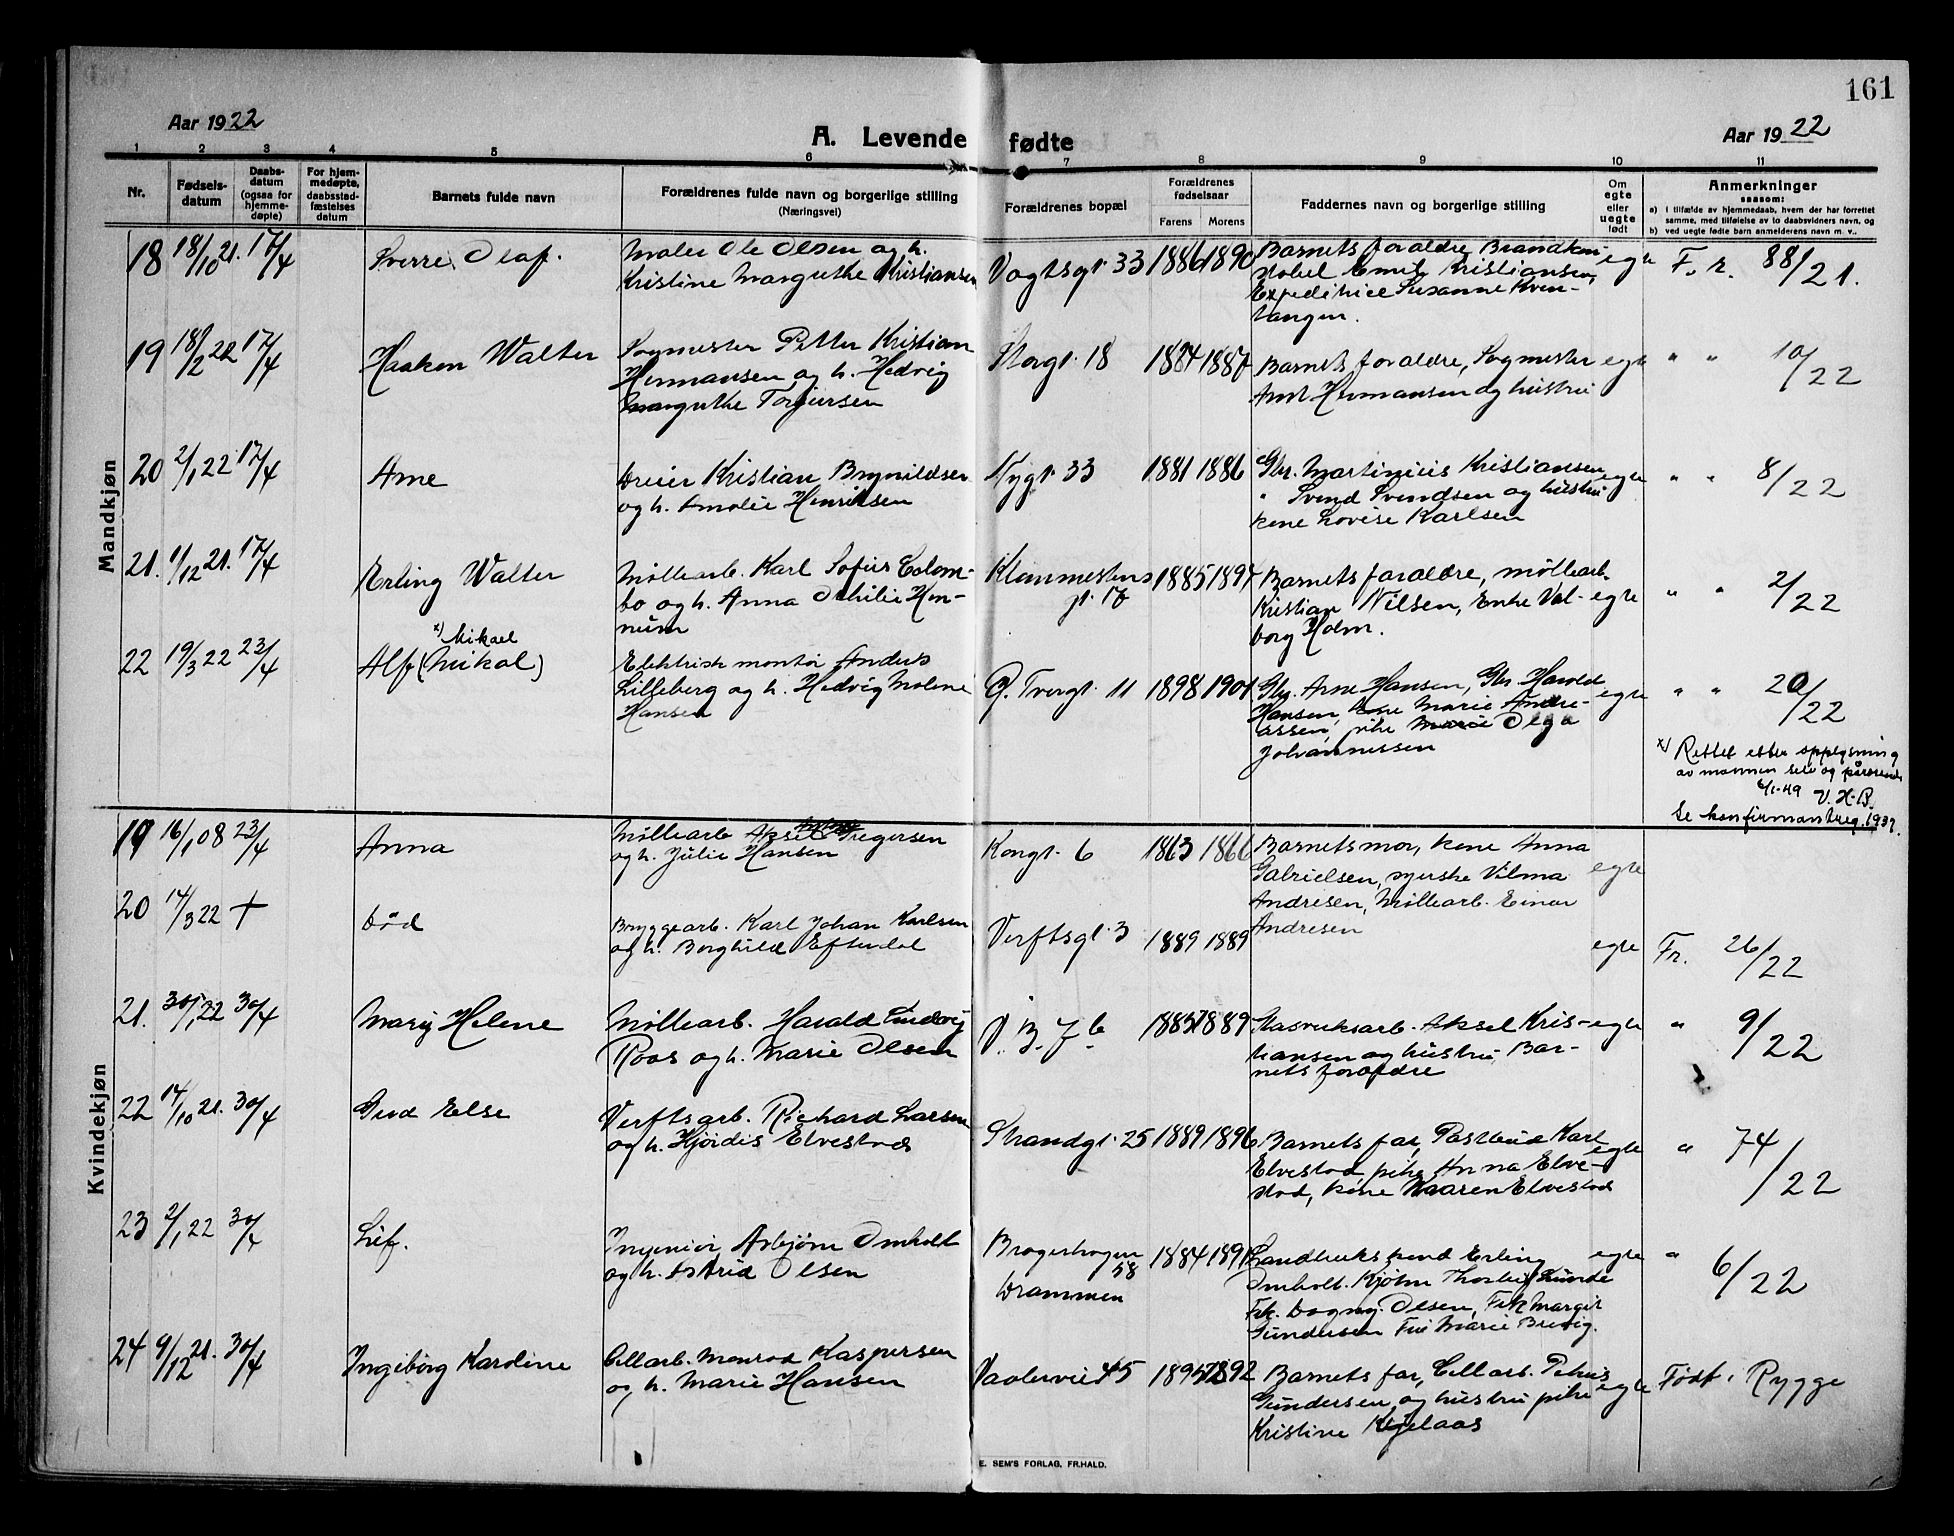 161
Aar 1922
A. Levende fødte
Aar 1922
1 2 3 4 5 6 7 8 9 10 11
Nr.
Fødsels-
datum
Daabs-
datum
(ogsaa for
hjemme-
døpte)
For hjem-
medøpte,
daabsstad-
fæstelses
datum
Barnets fulde navn
Forældrenes fulde navn og borgerlige stilling
(Næringsvei)
Forældrenes bopæl
Forældrenes
fødselsaar
Farens Morens
Faddernes navn og borgerlige stilling
Om
egte
eller
uegte
født
Anmerkninger
saasom:
a) i tilfælde av hjemmedaab, hvem der har forrettet
samme, med tilføielse av to daabsvidners navn, og
b) ved uegte fødte barn anmelderens navn m. v..
Mandkjøn
18 18/10 21. 17/4
Sverre Olaf.
Maler Ole Olsen og h.
Kristine Margrethe Kristiansen
Vogtsgt. 33 1886 1890
Barnets forældre,
Emil Kristiansen,
Expeditrice Susanne Kven-
tangen.
egte
F. r. 88/21.
19 18/2 22 17/4
Haakon Walter
Sagmester Petter Kristian
Hermansen og h. Hedvig
Margrethe Torgersen
Storgt. 18 1884 1887
Barnets forældre, Sagmester
Hermansen og hustru
egte
" " 10/22
20 2/1 22 17/4
Arne
Dreier Kristian Brynildsen
og h. Amalie Henriksen
Nygt. 33 1881 1886
Gbr. Martinius Kristiansen
" Svend Svendsen og hustru
kone Lovise Karlsen
egte
" " 8/22
21. 11/12 21. 17/4
Erling Walter
Møllearb. Karl Sofus Colom-
bo og h. Anna Othilie Hen-
num
1885 1894
Barnets forældre, møllearb.
Kristian Nilsen, Enke Val-
borg Holm.
egte
" " 2/22
22 19/3 22 23/4
x) Mikael
Alf (Mikal)
Elektrisk montør Anders
Lilleberg og h. Hedvig Malene
Hansen
Ø. Tvergt. 11 1898 1901
Gbr. Arne Hansen, Gbr. Harald
Hansen, kone Marie Andre-
assen, pike Marie Olga
Johannessen
egte
" " 20/22
x) Rettet etter opplysning
av mannen selv og pårørende
6/1-49 V. H. B.
Se konfirmantreg. 1937.
Kvindekjøn
19 16/1 08 23/4
Anna
Møllearb Aksel Gregersen
og h. Julie Hansen
Kongt. 6 1863 1866
Barnets mor, kone Anna
Gabrielsen, syerske Vilma
Andresen, Møllearb. Einar
Andresen
egte
20 14/3 22 +
død
Bryggearb. Karl Johan Karlsen
og h. Borghild Eftedal
Verftsgt. 3 1889 1889
egte
Fr. 26/22
21. 30/1 22 30/4
Mary Helene
Møllearb. Harald Ludvig
Roos og h. Marie Olsen
V. B. 7 b 1883 1889
Aksel Kris-
tiansen og hustru, Bar-
nets forældre
egte
" 9/22
22 14/10 21. 30/4
Gerd Else
Verftsarb. Richard Larsen
og h. Hjørdis Elvestad
Strandgt. 25 1889 1896
Barnets far, Postbud Karl
Elvestad, pike Anna Elve-
stad, kone Maaren Elvestad
egte
" 74/22
23 2/1 22 30/4
Liv.
Ingeniør Asbjørn Omholt
og h. Astrid Olsen
Bragerhagen
58
Drammen
1884 1891
Landbrukskand Erling
Omholt. Kjøbm Thorleif Lunde
Frk. Dagny Olsen, Frk Margit
Gundersen Fru Marie Brevig.
egte
" 6/22
24 9/12 21. 30/4
Ingeborg Karoline
Cellarb. Monrad Kaspersen
og h. Marie Hansen
Vaalervei 45 1892
Barnets far, Cellarb. Petrus
Gundersen og hustru pike
Kristine Kjelaas
egte
Født i Rygge
E. SEM'S FORLAG, FR.HALD.